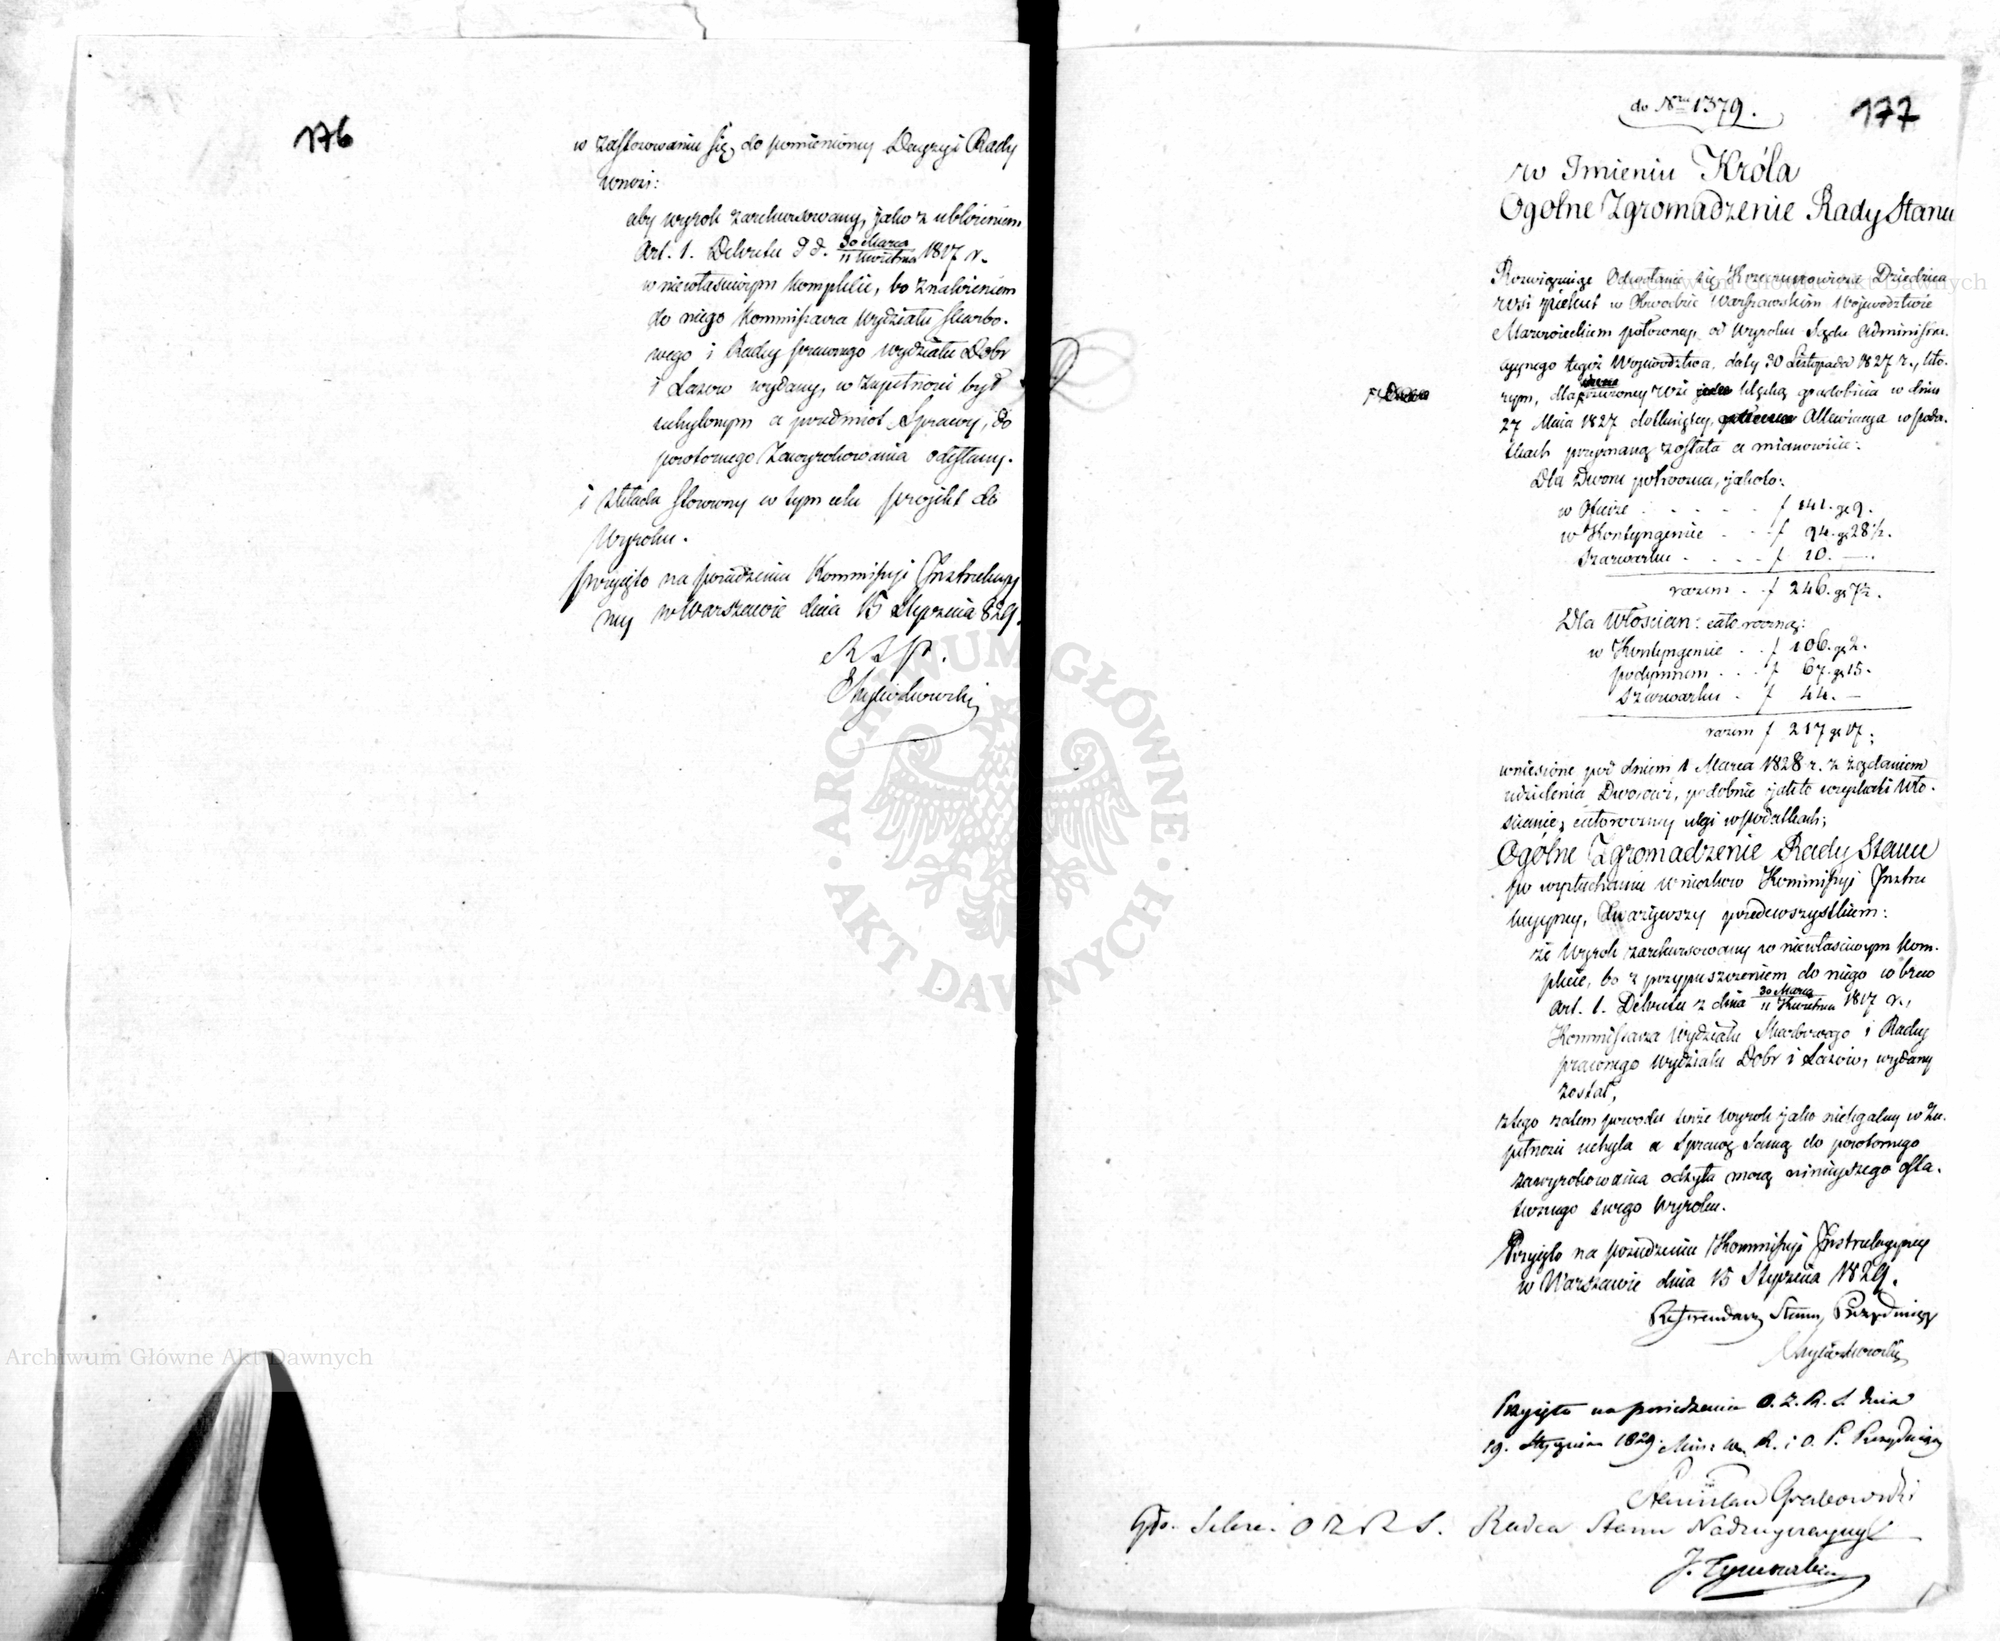 176
w zastosowaniu się, do pomienioney Decyzyi Rady
wnosi:
aby wyrok zarekursowany, jako z ubliżeniem
Art. 1. Dekretu d d. 30 Marca / 11 Kwietnia 1817 r.
w niewłaściwym komplecie, bo z należeniem
do niego Kommissarza Wydziału Skarbo-
wego i Radcy prawnego Wydziału Dobr
i Lasow wydany, w zupełności był
uchylonym a przedmiot Sprawy, do
powtornego Zawyrokowania odesłany.
i składa stosowny w tym celu projekt do
Wyroku.
przyięto na posiedzeniu Kommissyi Instrukcyy
ney w Warszawie dnia 15 Stycznia 829.
R S P.
177
do Nru 1379.
w Imieniu Króla
Ogólne Zgromadzenie Rady Stanu
Rozwiązuiąc Odwołanie się Dziedzica
wsi w Obwodzie Warszawskim Województwie
Mazowieckiem położoney, od Wyroku Sądu Administra-
cyynego tegoż Województwa, daty 30 Listopada 1827 r., któ-
rym, dla wsi klęską gradobicia w dniu
27 Maia 1827 dotkniętey, Allewiacya w poda-
tkach przyznaną została a mianowicie:
Dla Dworu połroczna, jakoto:
w Ofierze . . . . . f 141. gr 9.
w Kontyngensie . . . f 94. gr 28½.
Szarwarku . . . . f 10. —.
razem . . f 246. gr 7½.
Dla Włościan: całoroczną:
w Kontyngensie . . f 106. gr 2.
podymnem . . . f 67. gr 15.
Szarwarku . f 44. —
razem f 217 gr 17;
wniesione pod dniem 1 Marca 1828 r. z żądaniem
udzielenia Dworowi, podobnie jak to uzyskali Wło-
ścianie, całoroczney ulgi w podatkach;
Ogólne Zgromadzenie Rady Stanu
po wysłuchaniu wniosków Kommissyi Instru
kcyyney, Zważywszy przedewszystkiem:
że Wyrok zarekursowany w niewłaściwym kom-
plecie, bo z przypuszczeniem do niego wbrew
Art. 1. Dekretu z dnia 30 Marca / 11 Kwietnia 1817 r.,
Kommissarza Wydziału Skarbowego i Radcy
prawnego Wydziału Dobr i Lasów, wydany
został,
z tego zatem powodu tenże wyrok jako nielegalny w Zu-
pełności uchyla a Sprawę Samą do powtornego
zawyrokowania odsyła mocą ninieyszego osta-
tecznego swego Wyroku.
Przyięto na posiedzeniu Kommissyi Instrukcyyney
w Warszawie dnia 15 Stycznia 1829.
Referendarz Stanu, Prezyduiący
Przyięto na posiedzeniu O. Z. R. S. dnia
19. Stycznia 1829. Min: W. R. i O. P. Prezyduiący
Stanisław Grabowski
Sekre. O Z R S. Radca Stanu Nadzwyczayny
J. Tymowski
ARCHIWUM GŁÓWNE · AKT DAWNYCH ·
Archiwum Główne Akt Dawnych
Archiwum Główne Akt Dawnych